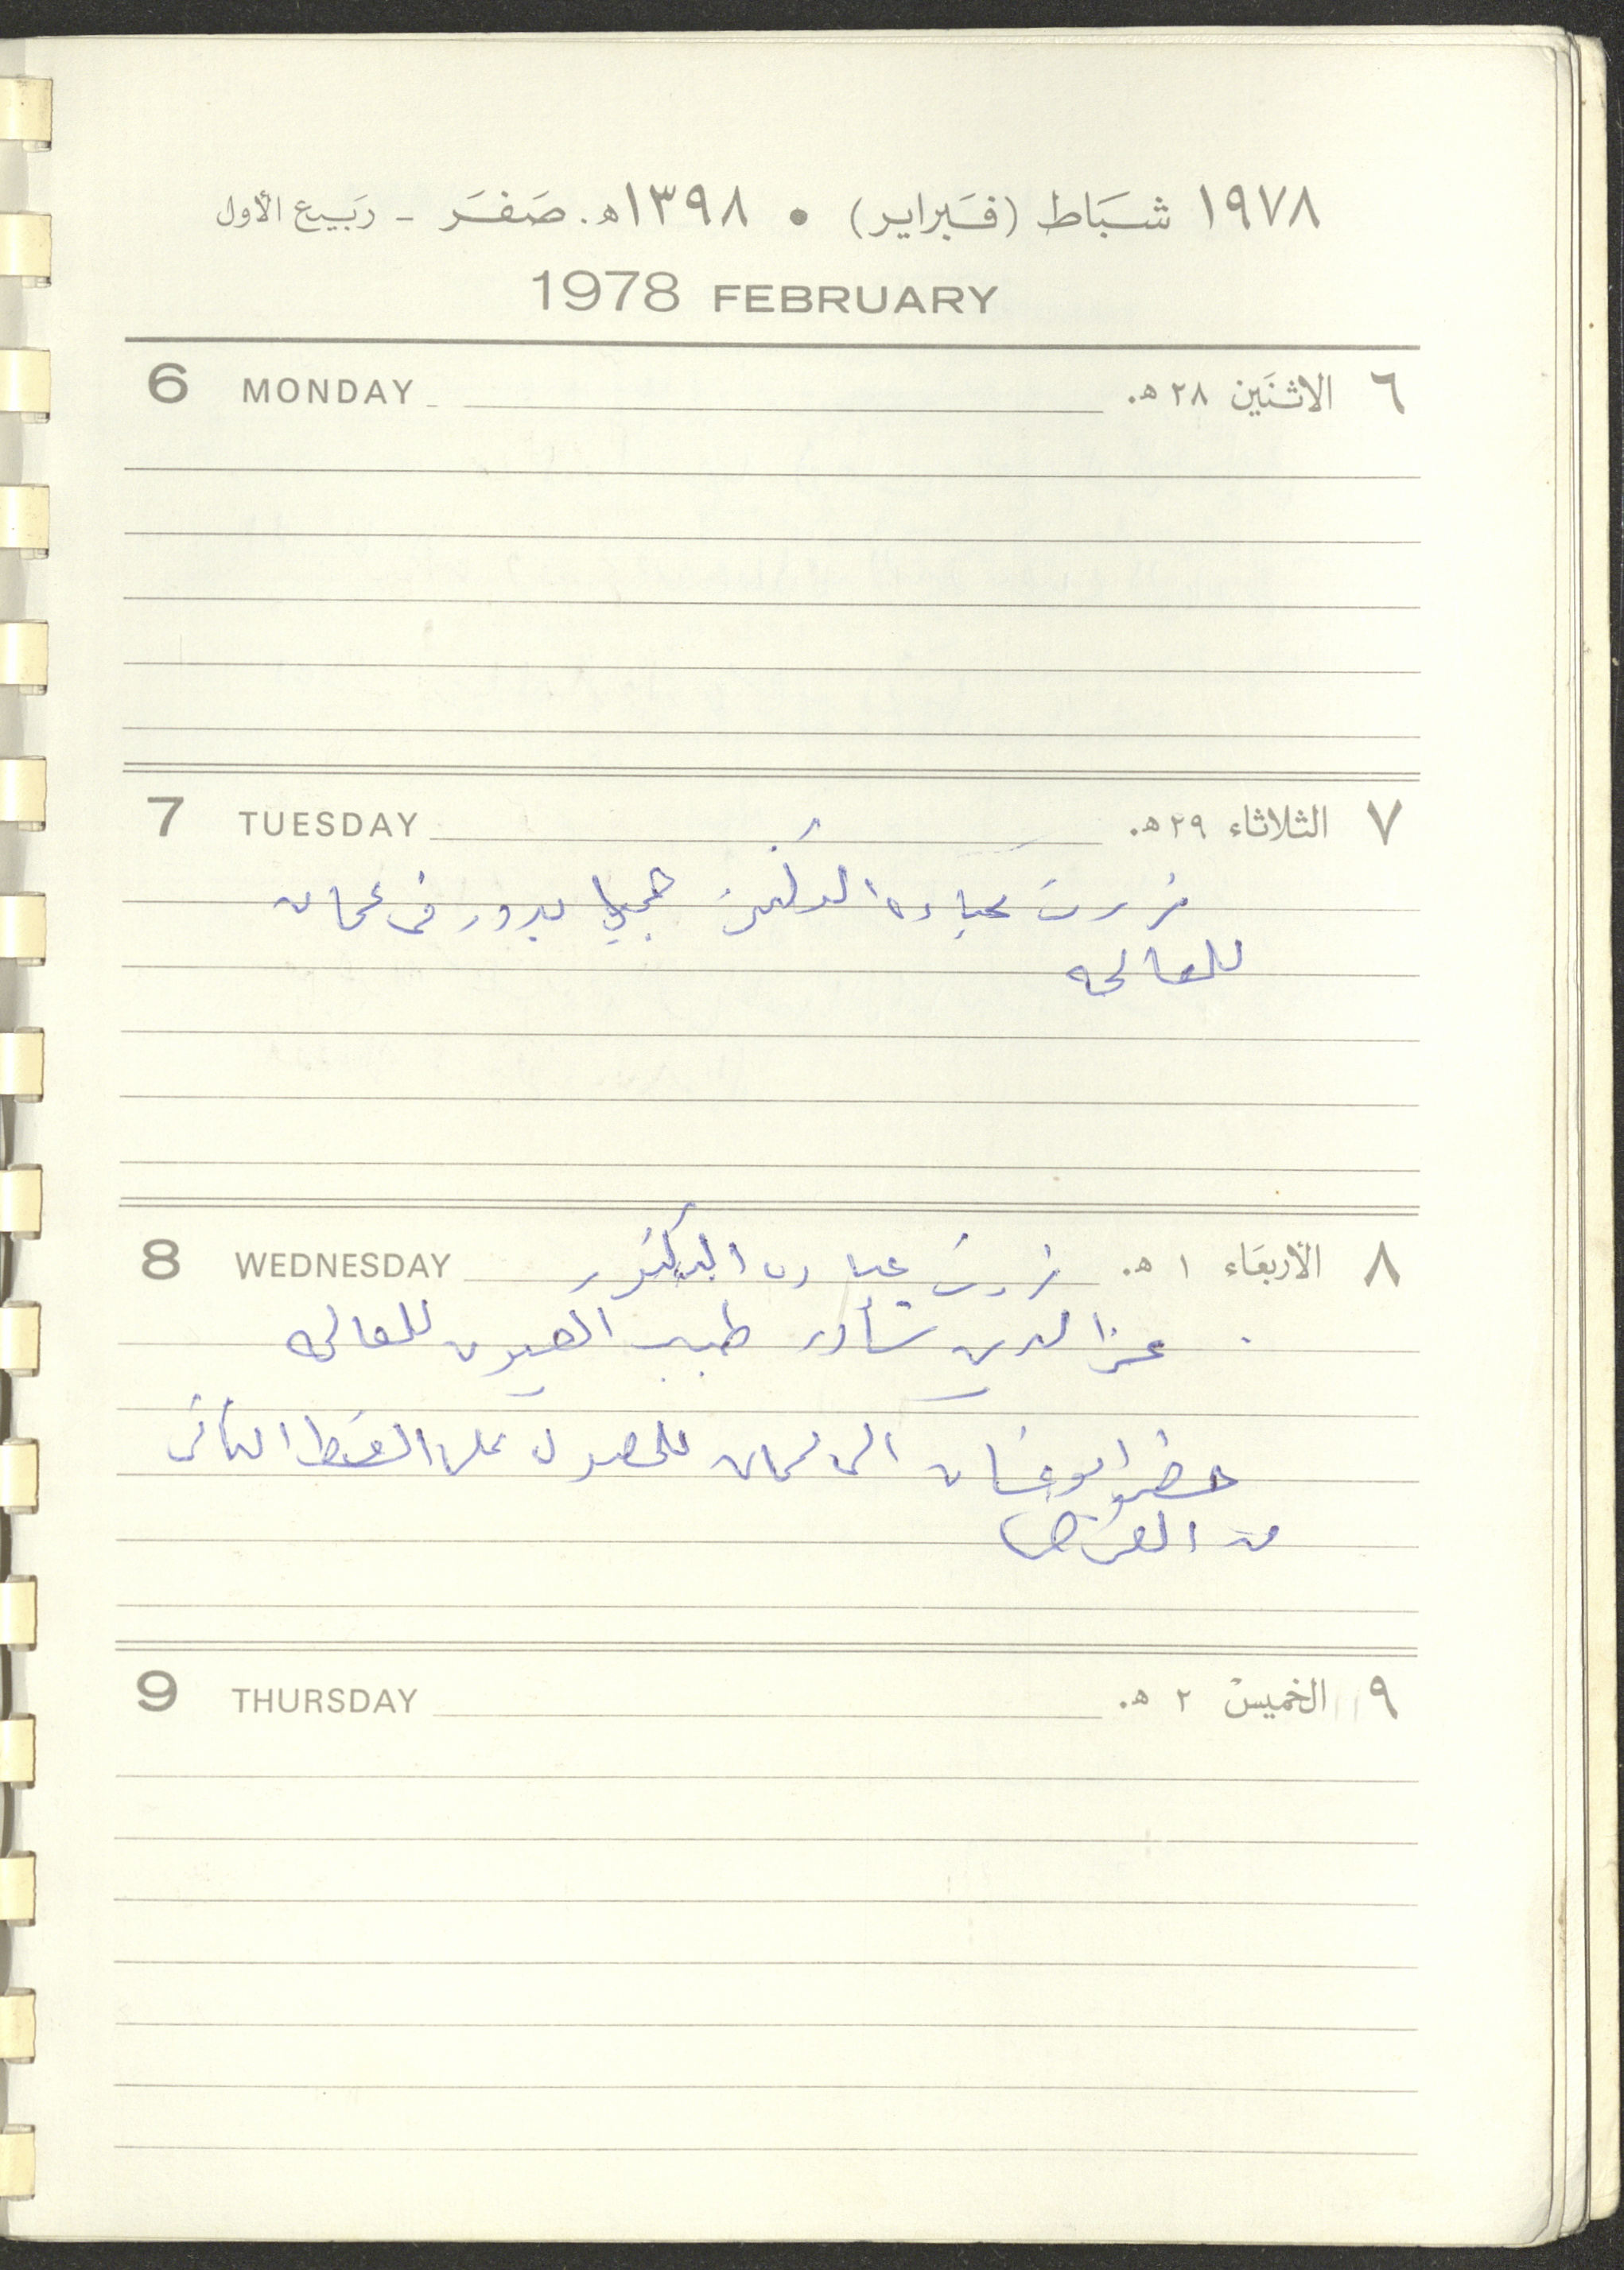 ١٩٧٨ شباط (فبراير) • ١٣٩٨هـ. صفر - ربيع الأول
1978 FEBRUARY
6 MONDAY ٦ الاثنين ٢٨ هـ.
7 TUESDAY ٧ الثلاثاء ٢٩ هـ.
زرت عيادة الدكتور بدور في عمان
للمعالجه
8 WEDNESDAY ٨ الأربعاء ١ هـ. زرت عيادة الدكتور
عز الدين طبيب العيون للمعالجه
حضر ابو غسان الى عمان للحصول على القسط الثاني
من القرض
9 THURSDAY ٩ الخميس ٢ هـ.